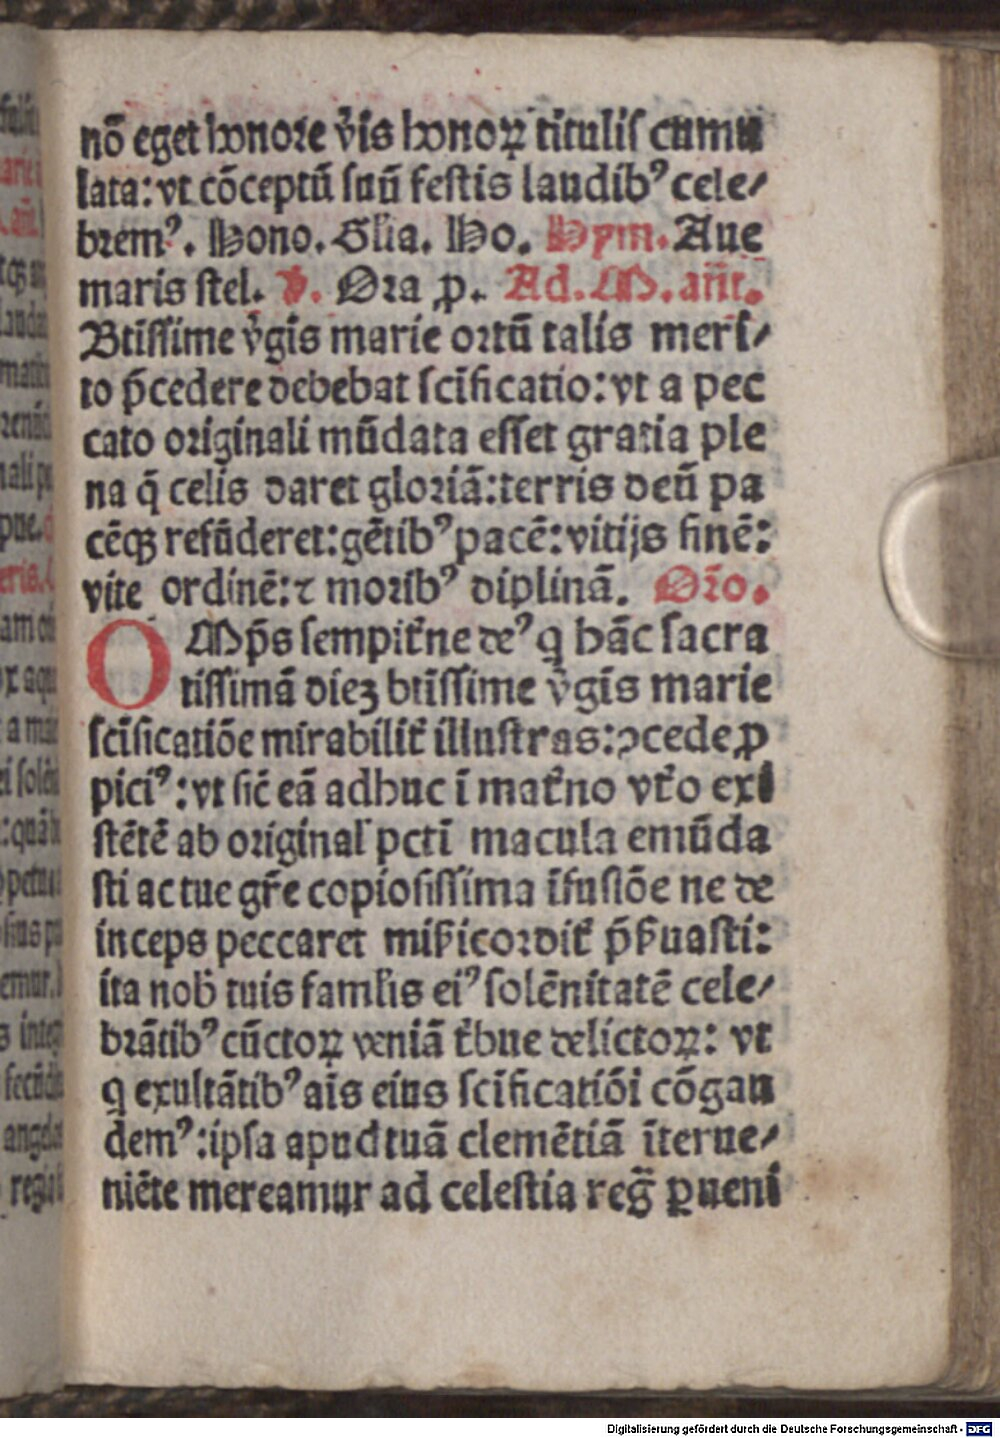 nō eget honore v̄is honoꝝ titulis cumu
lata: vt cōceptū suū festis laudibꝰ cele⸗
bremꝰ. Hono. Glīa. Ho. Hym. Aue
maris stel. V̄. Ora ꝓ. Ad. M. an̄t.
Btīssime v̄gīs marie ortū talis meri⸗
to p̄cedere debebat scīficatio: vt a pec
cato originali mūdata esset gratia ple
na q̄ celis daret gloriā: terris deū pa
cēqꝫ refūderet: gētibꝰ pacē: vitijs finē:
vite ordinē: ⁊ moribꝰ diplinā. Oro̅.
OMp̄s sempit̄ne deꝰ q hāc sacra
tissimā dieꝫ btīssime v̄gīs marie
scīficatiōe mirabilit̄ illustras: ꝯcede ꝓ
piciꝰ: vt sic̄ eā adhuc ī mat̄no vt̄o exi
stētē ab original̄ pctī macula emūda
sti ac tue gr̄e copiosissima īfusiōe ne de
inceps peccaret mis̄icordit̄ p̄s̄uasti:
ita nob̄ tuis famlīs eiꝰ solēnitatē cele⸗
brātibꝰ cūctoꝝ veniā t̄bue delictoꝝ: vt
q exultātibꝰ aīs eius scīficatiōi cōgau
demꝰ: ipsa apud tuā clemētiā īterue⸗
niēte mereamur ad celestia reḡ ꝑueni
Digitalisierung gefördert durch die Deutsche Forschungsgemeinschaft - DFG